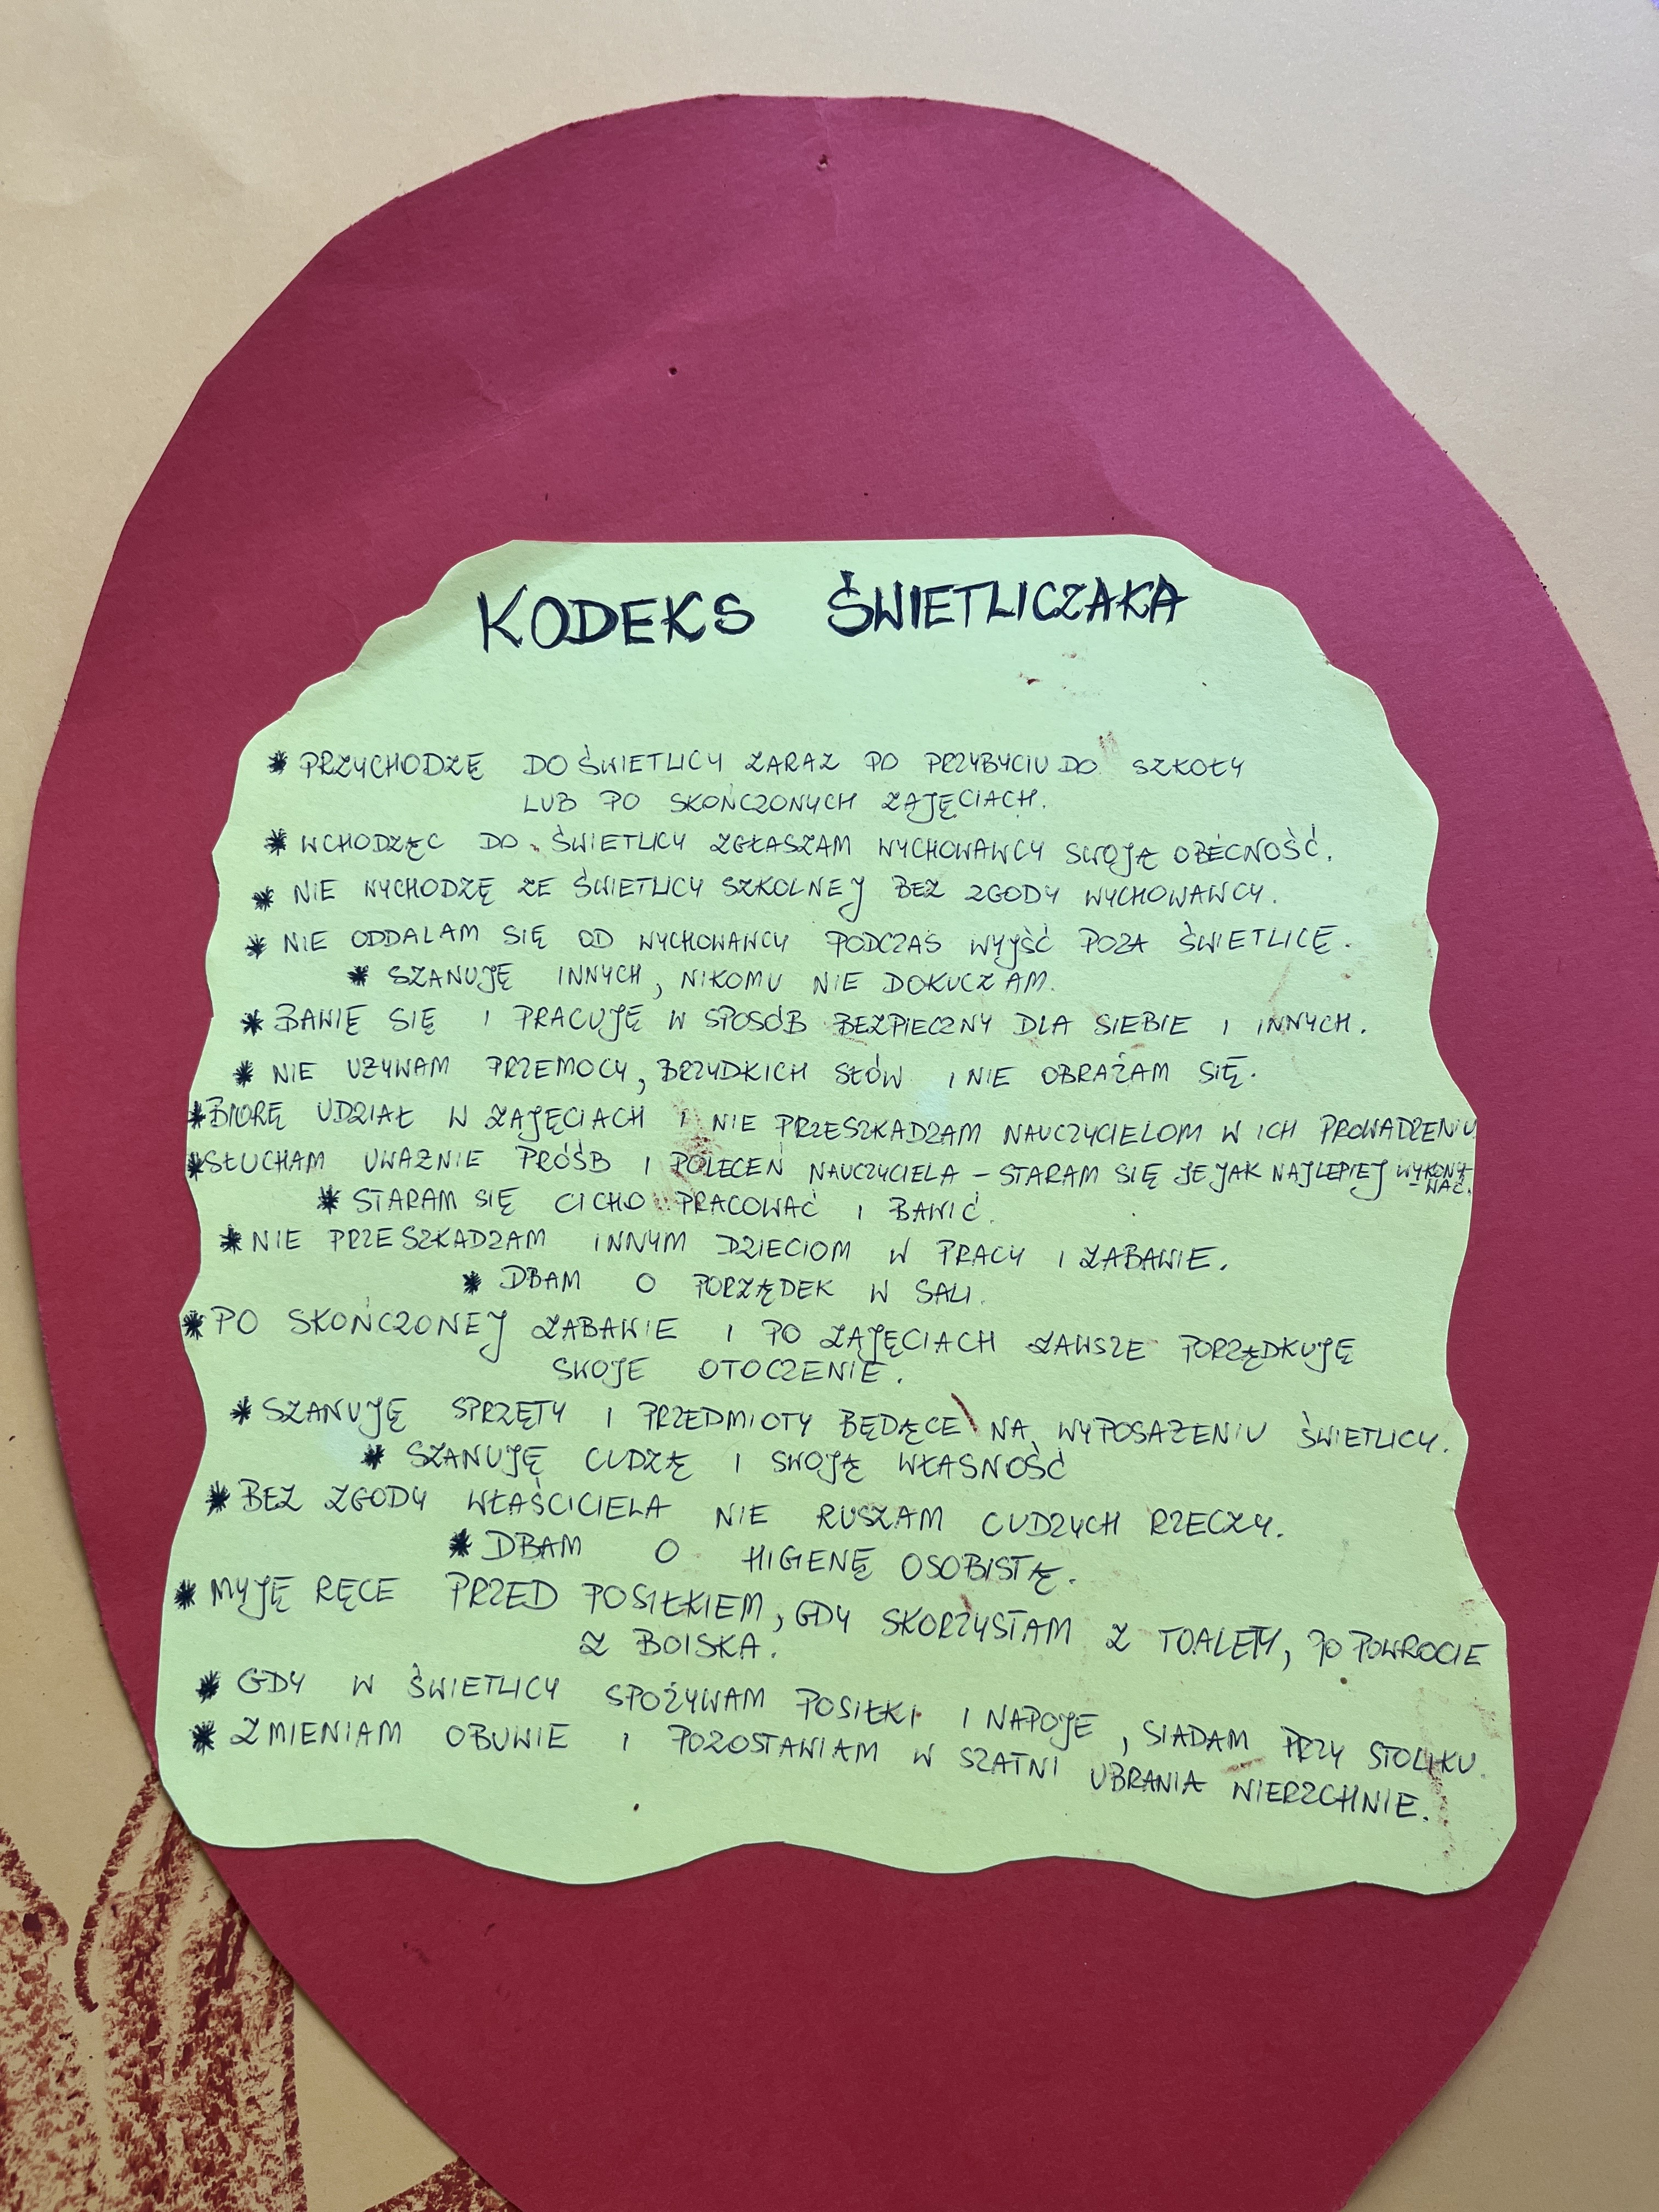 KODEKS ŚWIETLICZAKA
* PRZYCHODZĘ DO ŚWIETLICY ZARAZ PO PRZYBYCIU DO SZKOŁY
LUB PO SKOŃCZONYCH ZAJĘCIACH.
* WCHODZĄC DO ŚWIETLICY ZGŁASZAM WYCHOWAWCY SWOJĄ OBECNOŚĆ.
* NIE WYCHODZĘ ZE ŚWIETLICY SZKOLNEJ BEZ ZGODY WYCHOWAWCY.
* NIE ODDALAM SIĘ OD WYCHOWAWCY PODCZAS WYJŚĆ POZA ŚWIETLICĘ.
* SZANUJĘ INNYCH, NIKOMU NIE DOKUCZAM.
* BAWIĘ SIĘ I PRACUJĘ W SPOSÓB BEZPIECZNY DLA SIEBIE I INNYCH.
* NIE UŻYWAM PRZEMOCY, BRZYDKICH SŁÓW I NIE OBRAŻAM SIĘ.
* BIORĘ UDZIAŁ W ZAJĘCIACH I NIE PRZESZKADZAM NAUCZYCIELOM W ICH PROWADZENIU
* SŁUCHAM UWAŻNIE PRÓŚB I POLECEŃ NAUCZYCIELA – STARAM SIĘ JE JAK NAJLEPIEJ WYKONY-
WAĆ.
* STARAM SIĘ CICHO PRACOWAĆ I BAWIĆ.
* NIE PRZESZKADZAM INNYM DZIECIOM W PRACY I ZABAWIE.
* DBAM O PORZĄDEK W SALI.
* PO SKOŃCZONEJ ZABAWIE I PO ZAJĘCIACH ZAWSZE PORZĄDKUJĘ
SWOJE OTOCZENIE.
* SZANUJĘ SPRZĘTY I PRZEDMIOTY BĘDĄCE NA WYPOSAŻENIU ŚWIETLICY.
* SZANUJĘ CUDZĄ I SWOJĄ WŁASNOŚĆ
* BEZ ZGODY WŁAŚCICIELA NIE RUSZAM CUDZYCH RZECZY.
* DBAM O HIGENĘ OSOBISTĄ.
* MYJĘ RĘCE PRZED POSIŁKIEM, GDY SKORZYSTAM Z TOALETY, PO POWROCIE
Z BOISKA.
* GDY W ŚWIETLICY SPOŻYWAM POSIŁKI I NAPOJE, SIADAM PRZY STOLIKU.
* ZMIENIAM OBUWIE I POZOSTAWIAM W SZATNI UBRANIA WIERZCHNIE.